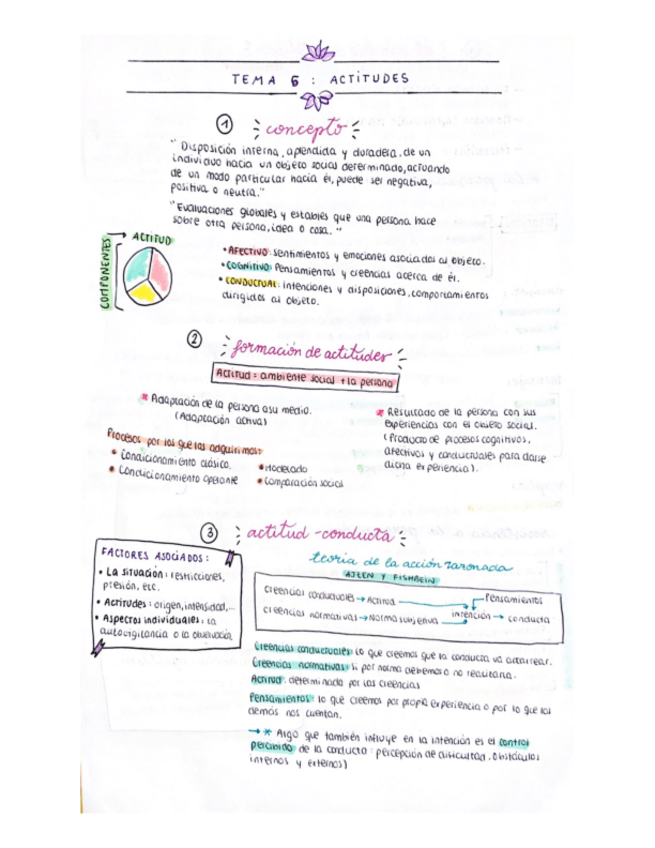 TEMA 6 : ACTITUDES
1 concepto
"Disposición interna, aprendida y duradera, de un
individuo hacia un objeto social determinado, actuando
de un modo particular hacia él, puede ser negativa,
positiva o neutra."
"Evaluaciones globales y estables que una persona hace
sobre otra persona, idea o cosa."
COMPONENTES
ACTITUD
• AFECTIVO: sentimientos y emociones asociadas al objeto.
• COGNITIVO: Pensamientos y creencias acerca de él.
• CONDUCTUAL: intenciones y disposiciones, comportamientos
dirigidos al objeto.
2 formación de actitudes
Actitud = ambiente social + la persona
* Adaptación de la persona a su medio.
(Adaptación activa)
Procesos por los que las adquirimos:
• Condicionamiento clásico.
• Condicionamiento operante
• Modelado
• Comparación social
* Resultado de la persona con sus
experiencias con el objeto social.
(Producto de procesos cognitivos,
afectivos y conductuales para darse
dicha experiencia).
3 actitud-conducta
FACTORES ASOCIADOS:
• La situación: restricciones,
presión, etc.
• Actitudes: origen, intensidad,...
• Aspectos individuales: la
autovigilancia o la observación
teoría de la acción razonada
AJZEN Y FISHBEIN
Creencias conductuales → Actitud
Pensamientos
Creencias normativas → Norma subjetiva
intención → conducta
Creencias conductuales: lo que creemos que la conducta va a acarrear.
Creencias normativas: si por norma debemos o no realizarla.
Actitud: determinada por las creencias
Pensamientos: lo que creemos por propia experiencia o por lo que los
demás nos cuentan.
→ * Algo que también influye en la intención es el control
percibido de la conducta: percepción de dificultad. (obstáculos
internos y externos)